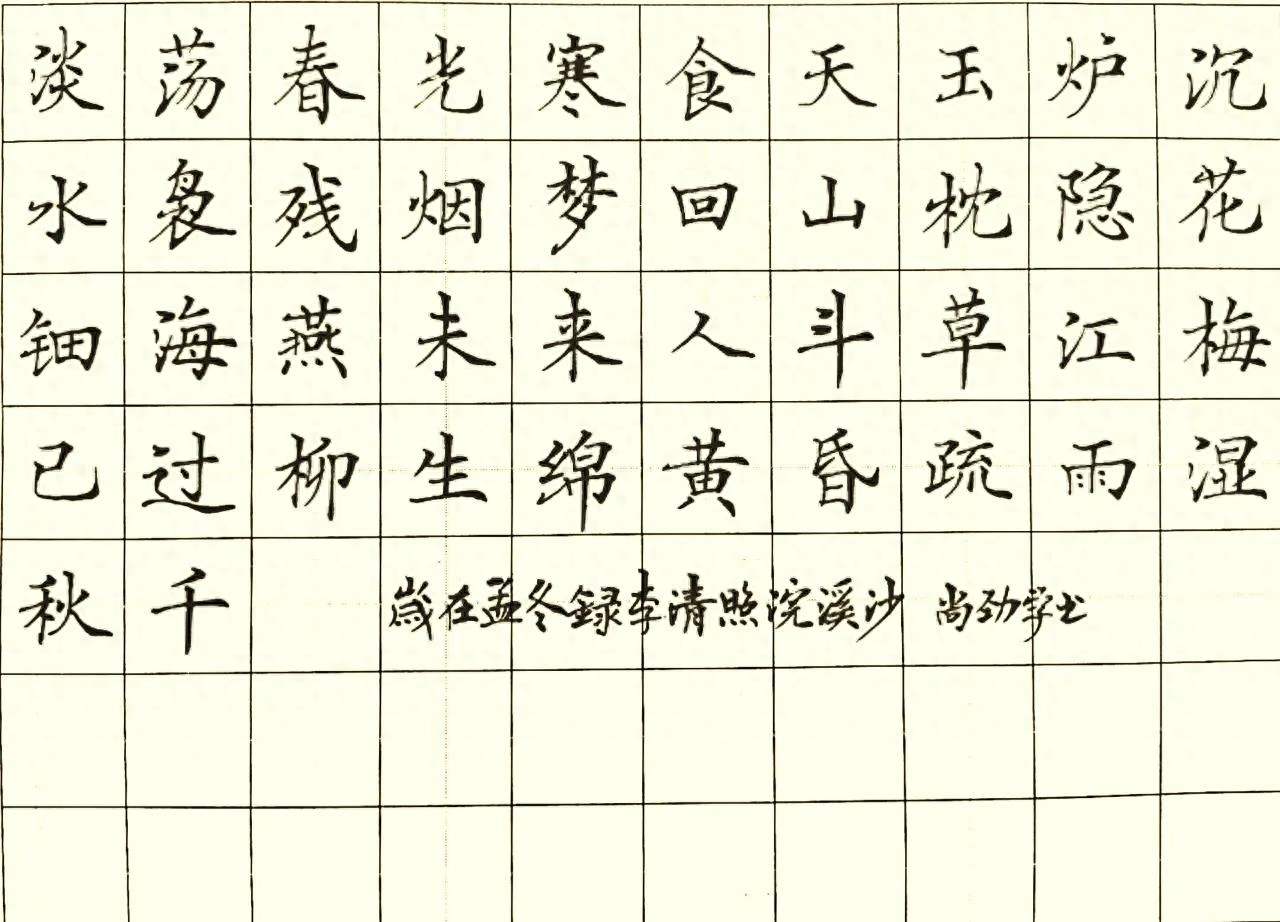 淡荡春光寒食天玉炉沉
水袅残烟梦回山枕隐花
钿海燕未来人斗草江梅
已过柳生绵黄昏疏雨湿
秋千 歳在孟冬録李清照浣溪沙 尚劲学书